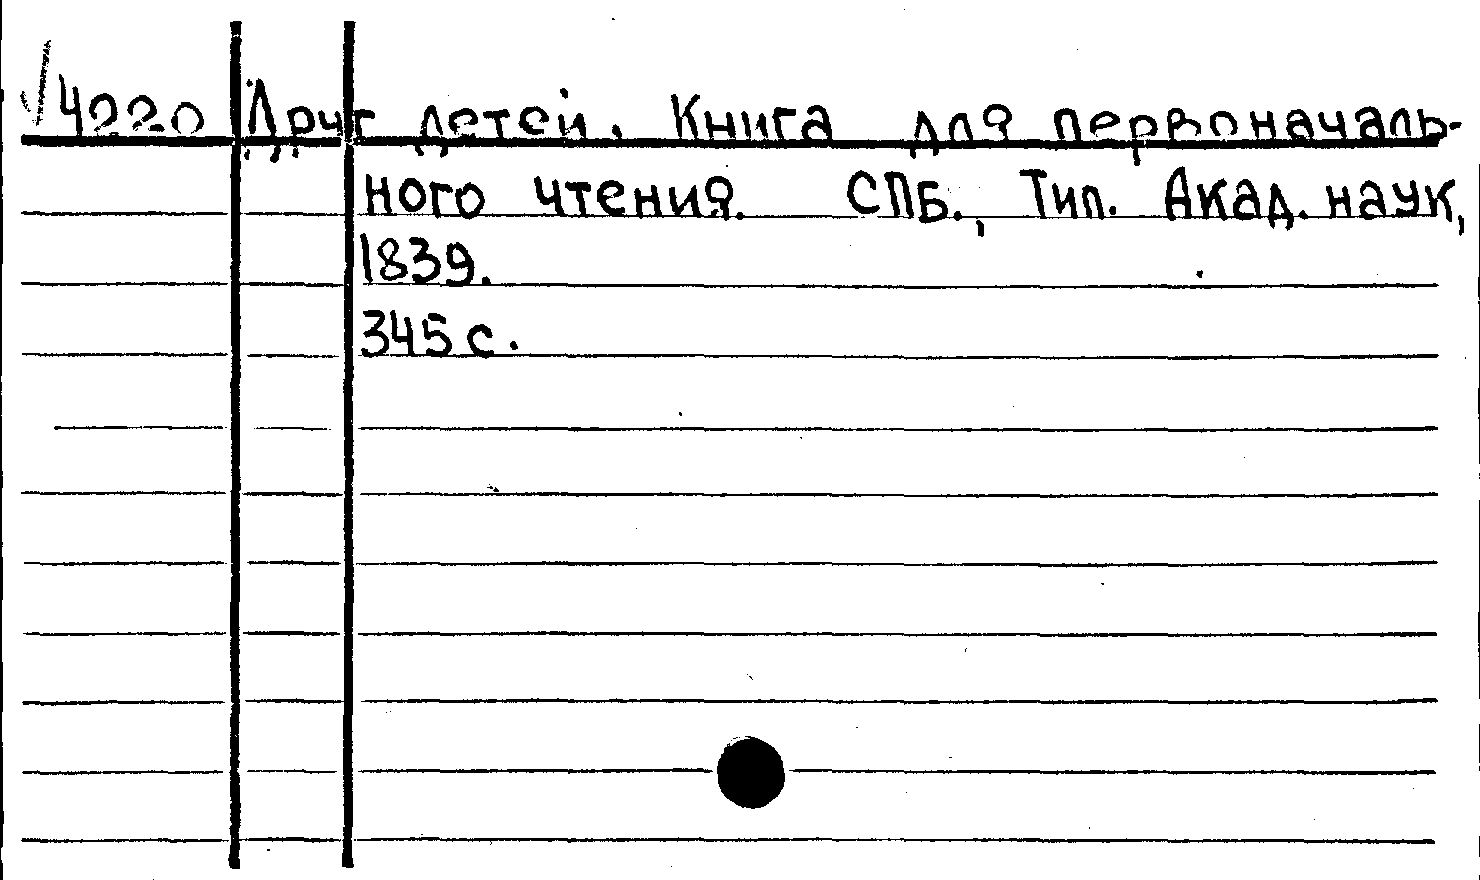 √4220 Друг детей. Книга для первоначаль-
ного чтения. СПБ., Тип. Акад. наук,
1839.
345 с.